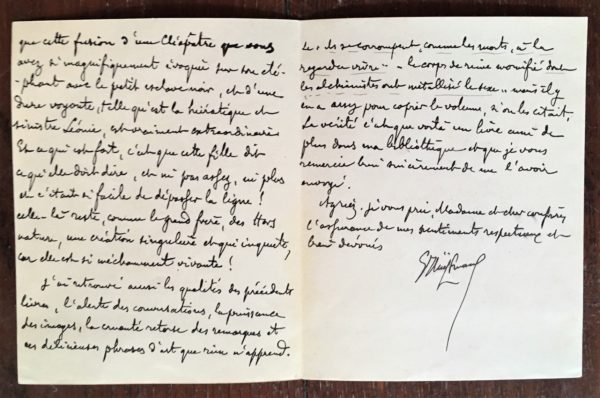 que cette fusion d'une Cléopâtre que vous
avez si magnifiquement évoquée sur son élé-
-phant avec le petit esclave noir, et d'une
dure voyante, telle qu'est la hiératique et
sinistre Léonie, est vraiment extraordinaire
Et ce qui est fort, c'est que cette fille dit
ce qu'elle doit dire, et ni pas assez, ni plus
et c'était si facile de dépasser la ligne!
celle-là reste, comme le grand frère, des Hors
nature, une création singulière et qui inquiète,
car elle est si méchamment vivante!
J'ai retrouvé aussi les qualités des précédents
livres, l'alerte des conversations, la puissance
des images, la cruauté retorse des remarques et
ces délicieuses phrases d'art que rien n'apprend.
Ils se corrompent, comme les morts, à la
regarder – le corps de reine momifié dont
les alchimistes ont métallisé le sexe – mais il y
en a assez pour copier le volume, si on les citait,
La vérité c'est que voilà un livre ami de
plus dans ma bibliothèque et que je vous
remercie bien sincèrement de me l'avoir
envoyé.
Agréez, je vous prie, Madame et cher confrère,
l'assurance de mes sentiments respectueux et
bien dévoués
G Huysmans